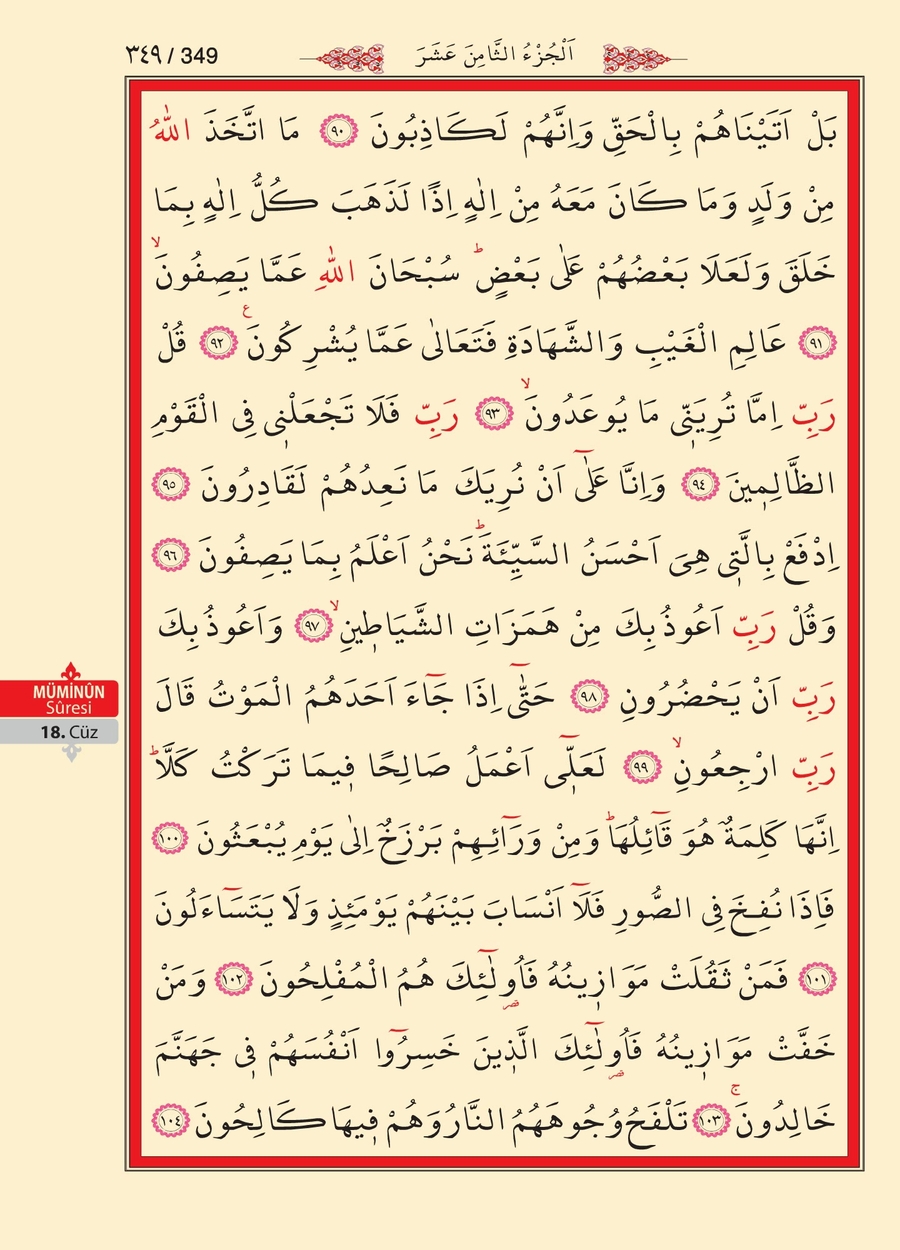 ٣٤٩ / 349
اَلْجُزْءُ الثَّامِنَ عَشَرَ
بَلْ اَتَيْنَاهُمْ بِالْحَقِّ وَاِنَّهُمْ لَكَاذِبُونَ ﴿٩٠﴾ مَا اتَّخَذَ اللّٰهُ
مِنْ وَلَدٍ وَمَا كَانَ مَعَهُ مِنْ اِلٰهٍ اِذًا لَذَهَبَ كُلُّ اِلٰهٍ بِمَا
خَلَقَ وَلَعَلَا بَعْضُهُمْ عَلٰى بَعْضٍۜ سُبْحَانَ اللّٰهِ عَمَّا يَصِفُونَۙ
﴿٩١﴾ عَالِمِ الْغَيْبِ وَالشَّهَادَةِ فَتَعَالٰى عَمَّا يُشْرِكُونَ۟ ﴿٩٢﴾ قُلْ
رَبِّ اِمَّا تُرِيَنّ۪ى مَا يُوعَدُونَۙ ﴿٩٣﴾ رَبِّ فَلَا تَجْعَلْن۪ى فِى الْقَوْمِ
الظَّالِم۪ينَ ﴿٩٤﴾ وَاِنَّا عَلٰٓى اَنْ نُرِيَكَ مَا نَعِدُهُمْ لَقَادِرُونَ ﴿٩٥﴾
اِدْفَعْ بِالَّت۪ى هِىَ اَحْسَنُ السَّيِّئَةَۜ نَحْنُ اَعْلَمُ بِمَا يَصِفُونَ ﴿٩٦﴾
وَقُلْ رَبِّ اَعُوذُ بِكَ مِنْ هَمَزَاتِ الشَّيَاط۪ينِۙ ﴿٩٧﴾ وَاَعُوذُ بِكَ
رَبِّ اَنْ يَحْضُرُونِ ﴿٩٨﴾ حَتّٰٓى اِذَا جَٓاءَ اَحَدَهُمُ الْمَوْتُ قَالَ
رَبِّ ارْجِعُونِۙ ﴿٩٩﴾ لَعَلّ۪ٓى اَعْمَلُ صَالِحًا ف۪يمَا تَرَكْتُ كَلَّاۜ
اِنَّهَا كَلِمَةٌ هُوَ قَٓائِلُهَاۜ وَمِنْ وَرَٓائِهِمْ بَرْزَخٌ اِلٰى يَوْمِ يُبْعَثُونَ ﴿١٠٠﴾
فَاِذَا نُفِخَ فِى الصُّورِ فَلَٓا اَنْسَابَ بَيْنَهُمْ يَوْمَئِذٍ وَلَا يَتَسَٓاءَلُونَ
﴿١٠١﴾ فَمَنْ ثَقُلَتْ مَوَاز۪ينُهُ فَاُو۬لٰٓئِكَ هُمُ الْمُفْلِحُونَ ﴿١٠٢﴾ وَمَنْ
خَفَّتْ مَوَاز۪ينُهُ فَاُو۬لٰٓئِكَ الَّذ۪ينَ خَسِرُٓوا اَنْفُسَهُمْ ف۪ى جَهَنَّمَ
خَالِدُونَۚ ﴿١٠٣﴾ تَلْفَحُ وُجُوهَهُمُ النَّارُ وَهُمْ ف۪يهَا كَالِحُونَ ﴿١٠٤﴾
MÜMİNÛN
Sûresi
18. Cüz